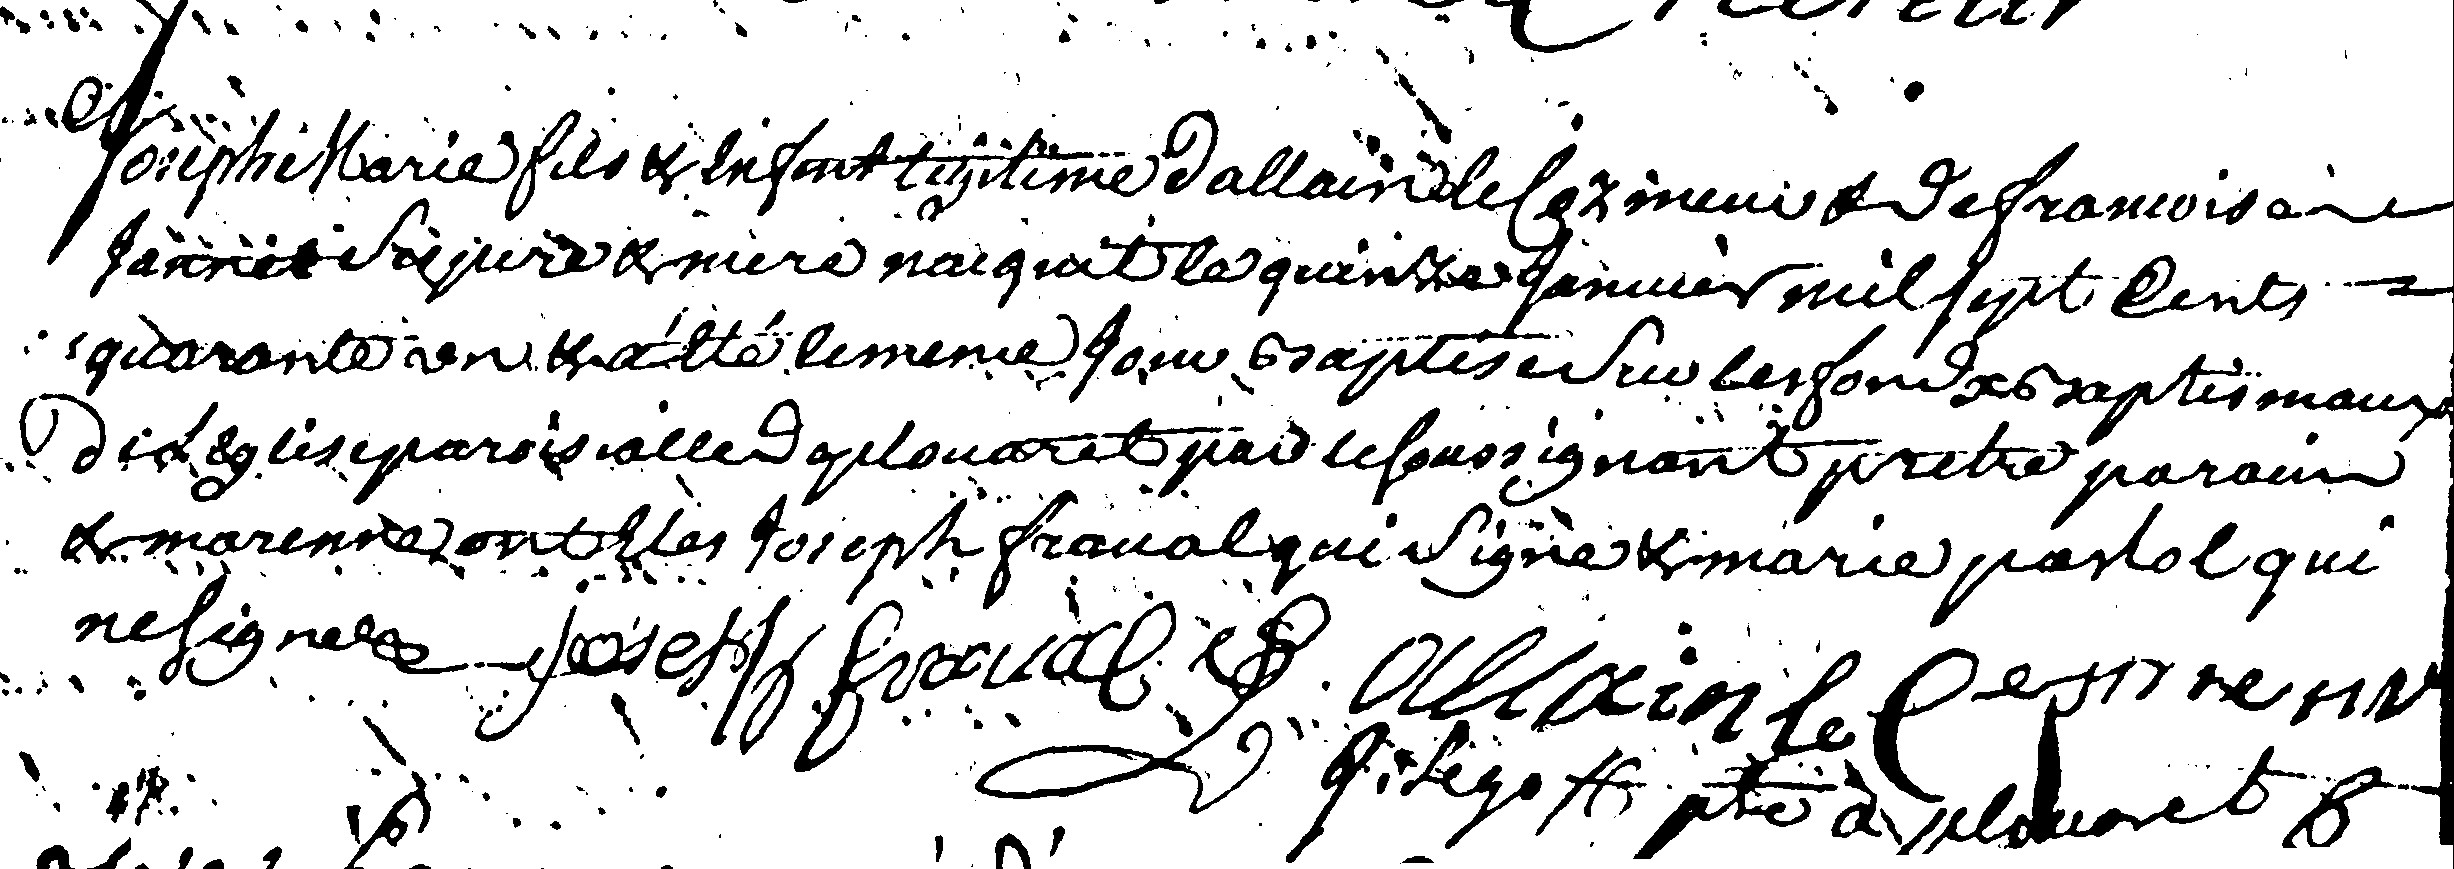 Joseph Marie fils & Enfant legitime Dallain le Cozmeur & De francoise
Jannet Ses pere & mere naiquit le quinze Janvier mil sept Cents
quarante un & a été le meme Jour Baptise Sur les fonds Baptismaux
De L'Eglise paroissialle De plouaret par le soussignant pretre parain
& marenne ont Estes Joseph fraval qui Signe & marie pastol qui
ne signe Joseph fraval Allain le Cozmeur
J: Le goff ptre a plouaret